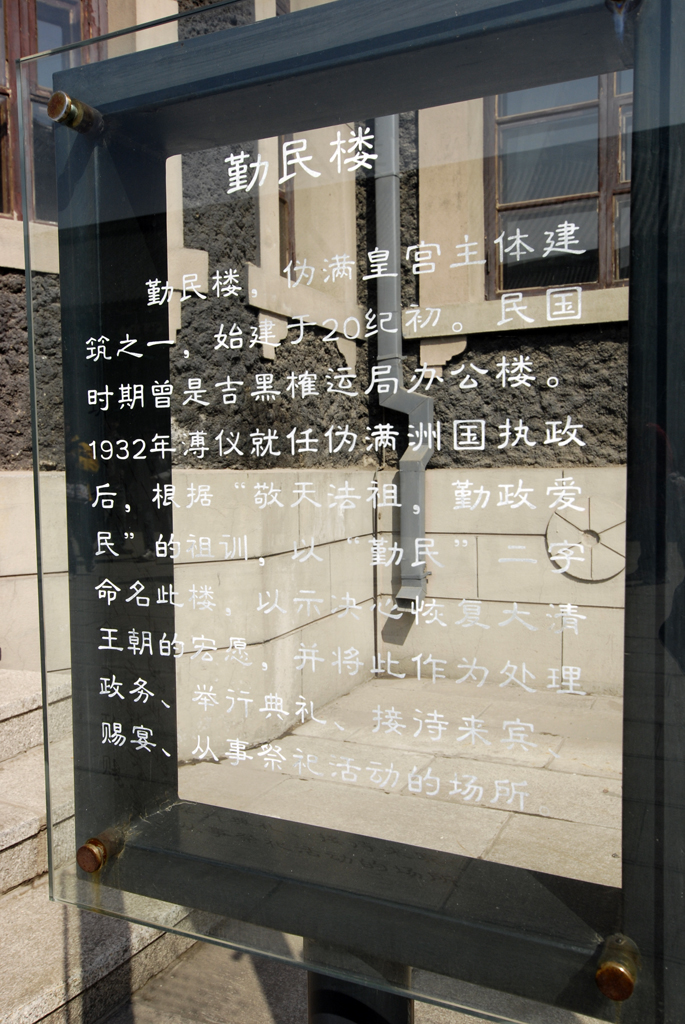 勤民楼
勤民楼，伪满皇宫主体建
筑之一，始建于20纪初。民国
时期曾是吉黑榷运局办公楼。
1932年溥仪就任伪满洲国执政
后，根据“敬天法祖，勤政爱
民”的祖训，以“勤民”二字
命名此楼，以示决心恢复大清
王朝的宏愿，并将此作为处理
政务、举行典礼、接待来宾、
赐宴、从事祭祀活动的场所